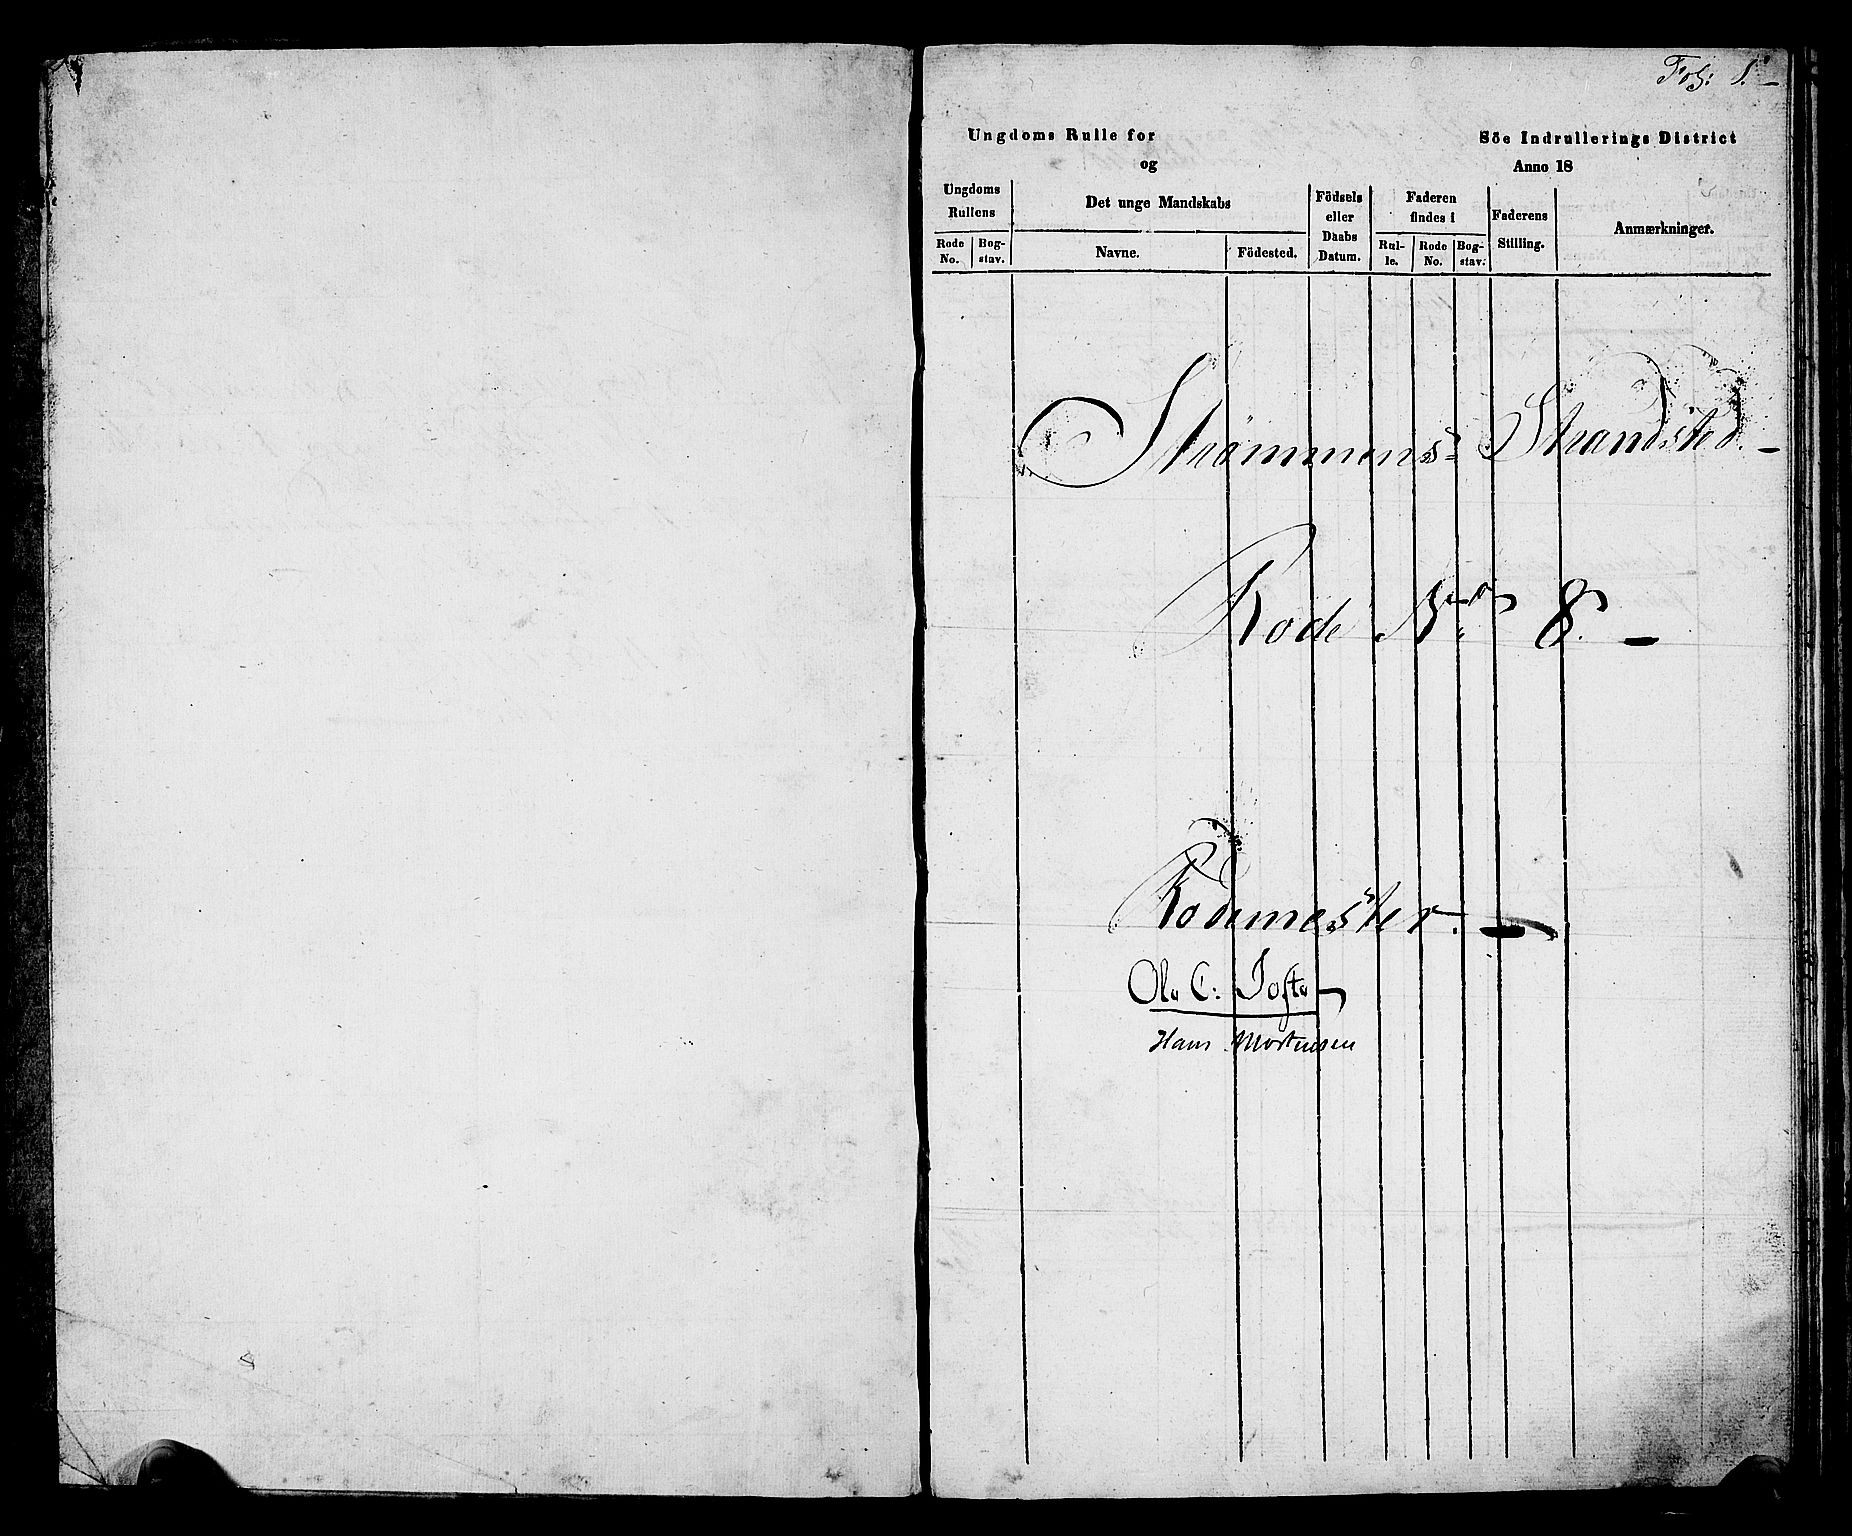 Fol: 1.
Ungdoms Rulle for Söe Indrullerings District
og Anno 18
Ungdoms Rullens Det unge Mandskabs Födsels eller Daabs Datum. Faderen findes i Faderens Stilling. Anmærkninger.
Rode No. Bog-stav. Navne. Födested. Rul-le. Rode No. Bog-stav.
Strømmens Strandsted.
Rode No 8.
Rodemester.
Ole C: Tofte
Hans Mortensen
8